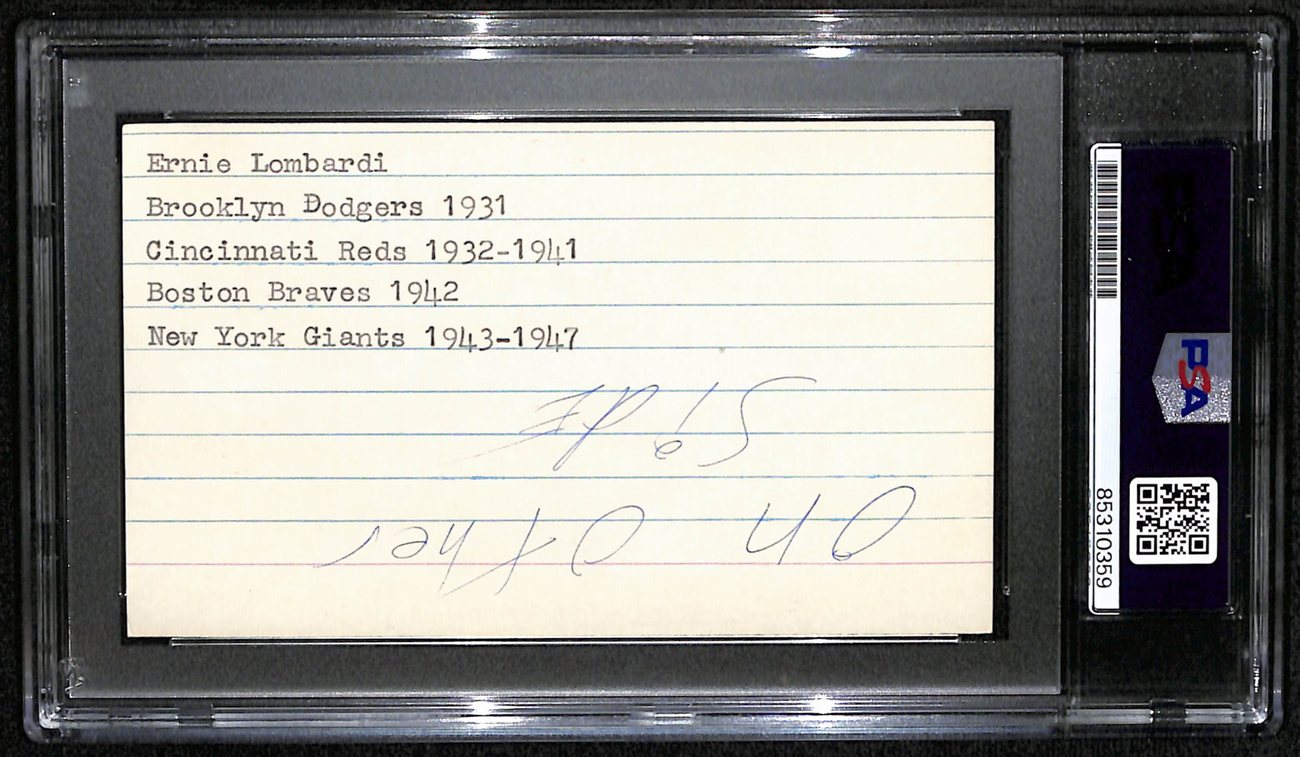 Ernie Lombardi
Brooklyn Dodgers 1931
Cincinnati Reds 1932-1941
Boston Braves 1942
New York Giants 1943-1947
On Other
SidE
PSA
85310359